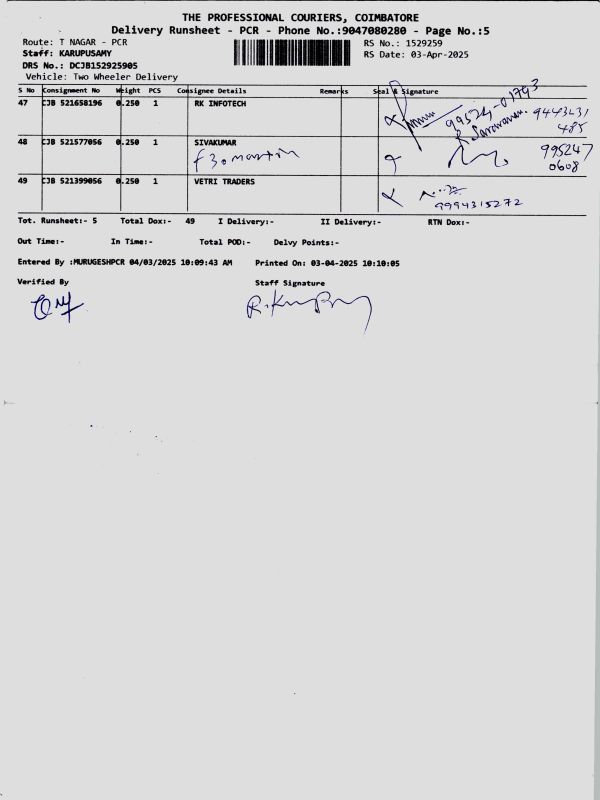 THE PROFESSIONAL COURIERS, COIMBATORE
Delivery Runsheet - PCR - Phone No.:9047080280 - Page No.:5
Route: T NAGAR - PCR RS No.: 1529259
Staff: KARUPUSAMY RS Date: 03-Apr-2025
DRS No.: DCJB152925905
Vehicle: Two Wheeler Delivery
S No Consignment No Weight PCS Consignee Details Remarks Seal & Signature
47 CJB 521658196 0.250 1 RK INFOTECH 99524-01743 944
R Saravanan. 485
48 CJB 521577056 0.250 1 SIVAKUMAR 995247
0608
49 CJB 521399056 0.250 1 VETRI TRADERS
9994315272
Tot. Runsheet:- 5 Total Dox:- 49 I Delivery:- II Delivery:- RTN Dox:-
Out Time:- In Time:- Total POD:- Delvy Points:-
Entered By :MURUGESHPCR 04/03/2025 10:09:43 AM Printed On: 03-04-2025 10:10:05
Verified By Staff Signature